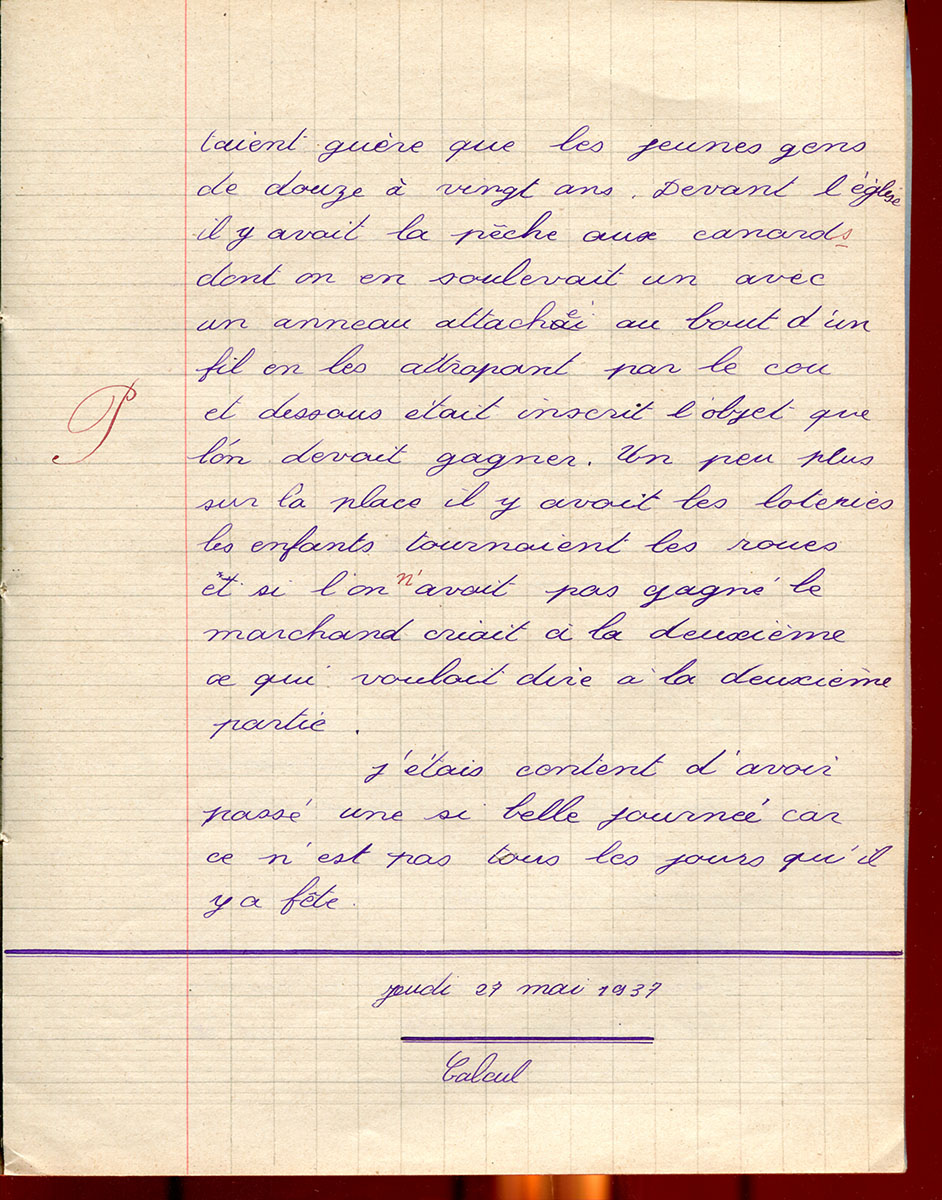 taient guère que les jeunes gens
de douze à vingt ans. Devant l'église
il y avait la pêche aux canards
dont on en soulevait un avec
un anneau attaché au bout d'un
fil en les attrapant par le cou
et dessous était inscrit l'objet que
l'on devait gagner. Un peu plus
P
sur la place il y avait les loteries
les enfants tournaient les roues
et si l'on n'avait pas gagné le
marchand criait à la deuxième
ce qui voulait dire à la deuxième
partie.
j'étais content d'avoir
passé une si belle journée car
ce n'est pas tous les jours qu'il
y a fête.
jeudi 27 mai 1937
Calcul